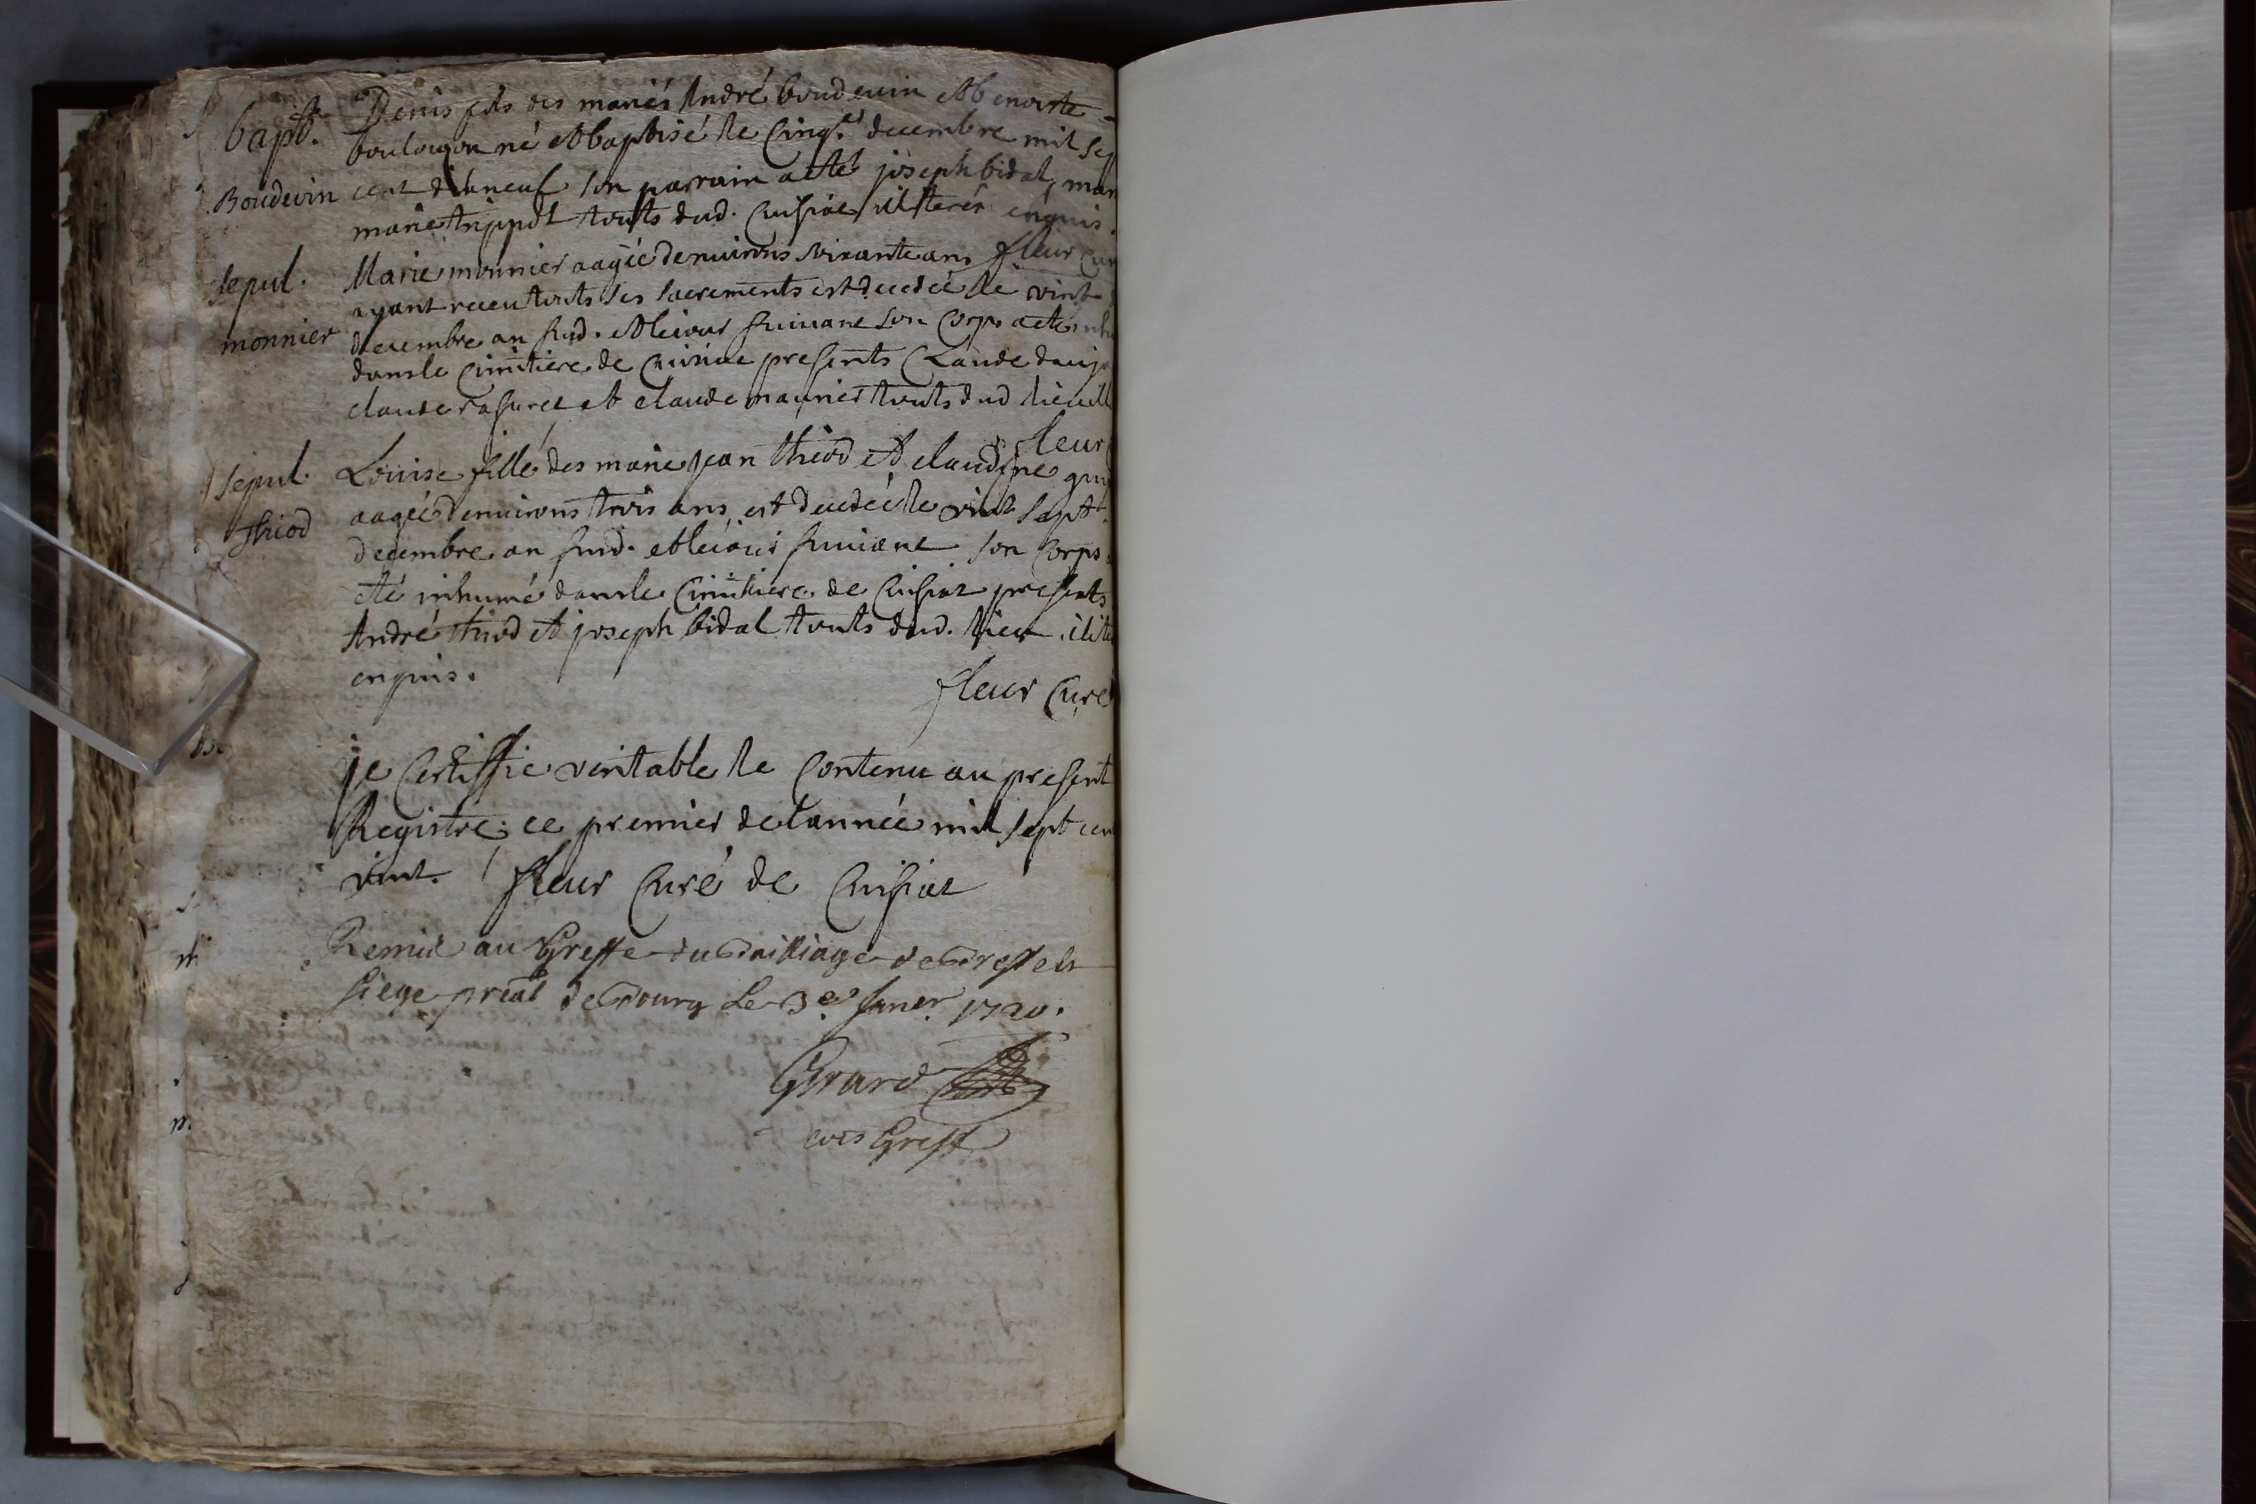 bapt. Denis fils des mariés André boudevin et benoiste
boulougon né et baptisé le cinqe. decembre mil sep
Boudevin cent dixneuf son parrain a etté joseph bidal, mar
marie trippot touts dud. Cuisiat illiterés enquis.
fleur cur
sepul. Marie monnier aagée denuirons soixante ans
ayant receu touts ses sacrements est decedée le vint
monnier decembre an susd. et le iour suiuant son corps a eté inhu
dans le cimitiere de Cuisiat presents Claude
claude et claude monnier touts dud lieu ill
fleur
sepul. Louise fille des marié jean thiod et claudine guy
Thiod aagée denuirons trois ans est decedée le vint septt.
decembre an susd. et le iour suiuant son corps a
eté inhumé dans le cimitiere de Cuisiat presents
André thiod et joseph bidal touts dud. lieu illite
enquis.
fleur Curé
je Certiffie veritable le contenu au present
Registre, ce premier de lannée mil sept cen
vint. fleur Curé de Cuisiat
Remis au Greffe du Bailliage de Bresse et
siege preal de Bourg Le 3e. Janer. 1720.
Girard
Greff